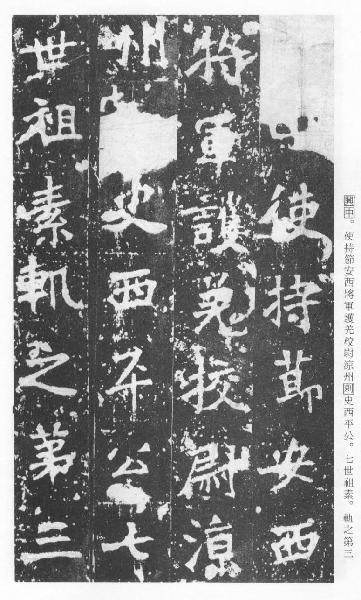 興中。使持節安西將軍護羌校尉涼州刺史西平公。七世祖素。軌之第三
使持莭安西
將軍護羌校尉涼
州史西平公七
世祖素軌之第三